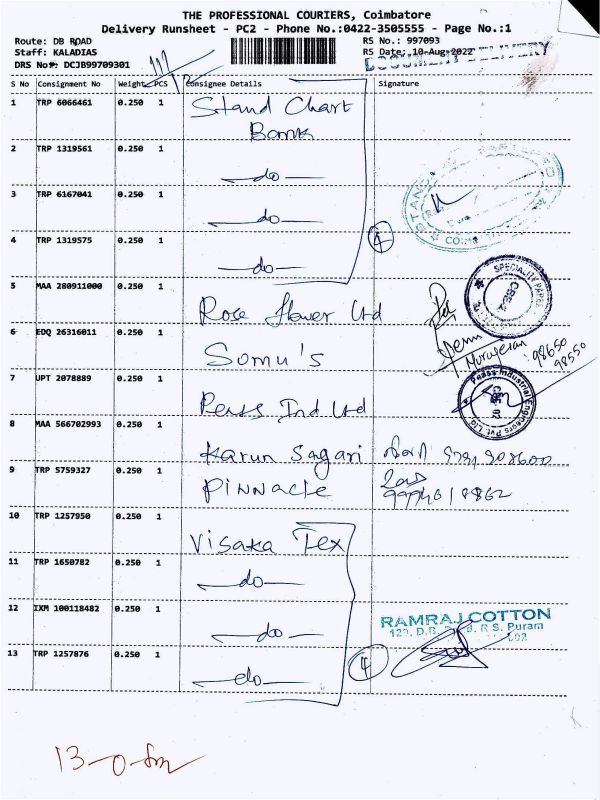 THE PROFESSIONAL COURIERS, Coimbatore
Delivery Runsheet - PC2 - Phone No.:0422-3505555 - Page No.:1
Route: DB ROAD
RS No.: 997093
Staff: KALADIAS
RS Date: 10-Aug-2022
DRS No#: DCJB99709301
DOCUMENT DELIVERY
S No Consignment No Weight PCS Consignee Details Signature
1 TRP 6066461 0.250 1 Stand Chart
Bank
2 TRP 1319561 0.250 1 —do—
3 TRP 6167041 0.250 1 —do—
4 TRP 1319575 0.250 1 —do—
4
5 MAA 280911000 0.250 1 Rose flower Ltd
SPECIALITY
6 EDQ 26316011 0.250 1 Somu's
Murugesan
98650
98550
7 UPT 2078889 0.250 1 Peass Ind Ltd
Peass Industrial Engineers Pvt Ltd
8 MAA 566702993 0.250 1 Karun Sagari
9 TRP 5759327 0.250 1 Pinnacle
10 TRP 1257950 0.250 1 Visaka Tex
11 TRP 1650782 0.250 1 —do—
12 IXM 100118482 0.250 1 —do—
RAMRAJ COTTON
R.S. Puram
13 TRP 1257876 0.250 1 —do—
4
13-0-